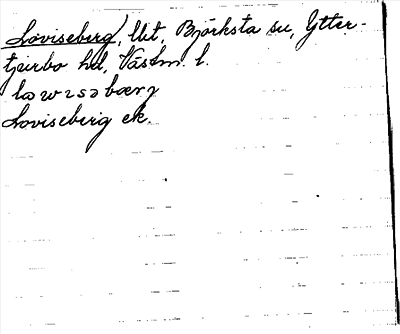 Loviseberg, lht, Björksta sn, Ytter-
tjurbo hd, Västm. l.
lɷwɪsəbærj
Loviseberg ek.